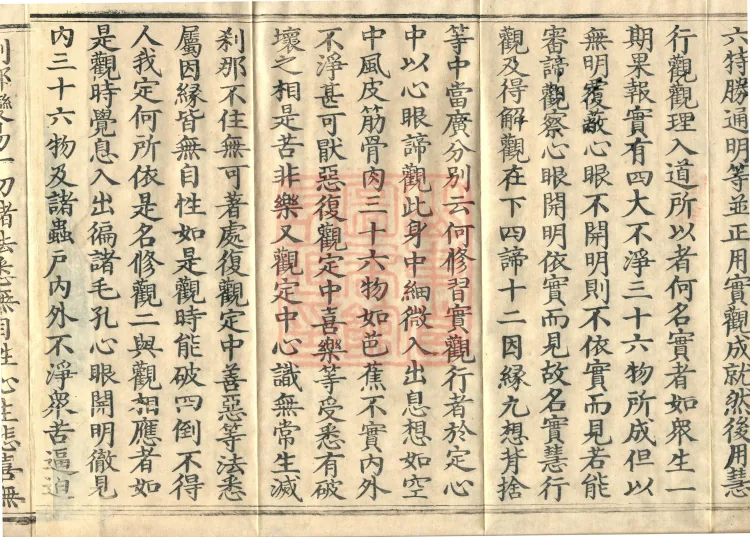 六特勝通明等並正用實觀成就然後用慧
行觀觀理入道所以者何名實者如衆生一
期果報實有四大不淨三十六物所成但以
無明覆蔽心眼不開明則不依實而見若能
審諦觀察心眼開明依實而見故名實慧行
觀及得解觀在下四諦十二因緣九想背捨
等中當廣分別云何修習實觀行者於定心
中以心眼諦觀此身中細微入出息想如空
中風皮筋骨肉三十六物如芭蕉不實內外
不淨甚可厭惡復觀定中喜樂等受悉有破
壞之相是苦非樂又觀定中心識無常生滅
刹那不住無可著處復觀定中善惡等法悉
屬因緣皆無自性如是觀時能破四倒不得
人我定何所依是名修觀二與觀相應者如
是觀時覺息入出徧諸毛孔心眼開明徹見
內三十六物及諸蟲戸內外不淨衆苦逼迫
刹那變易一切諸法悉無自性心生悲喜無